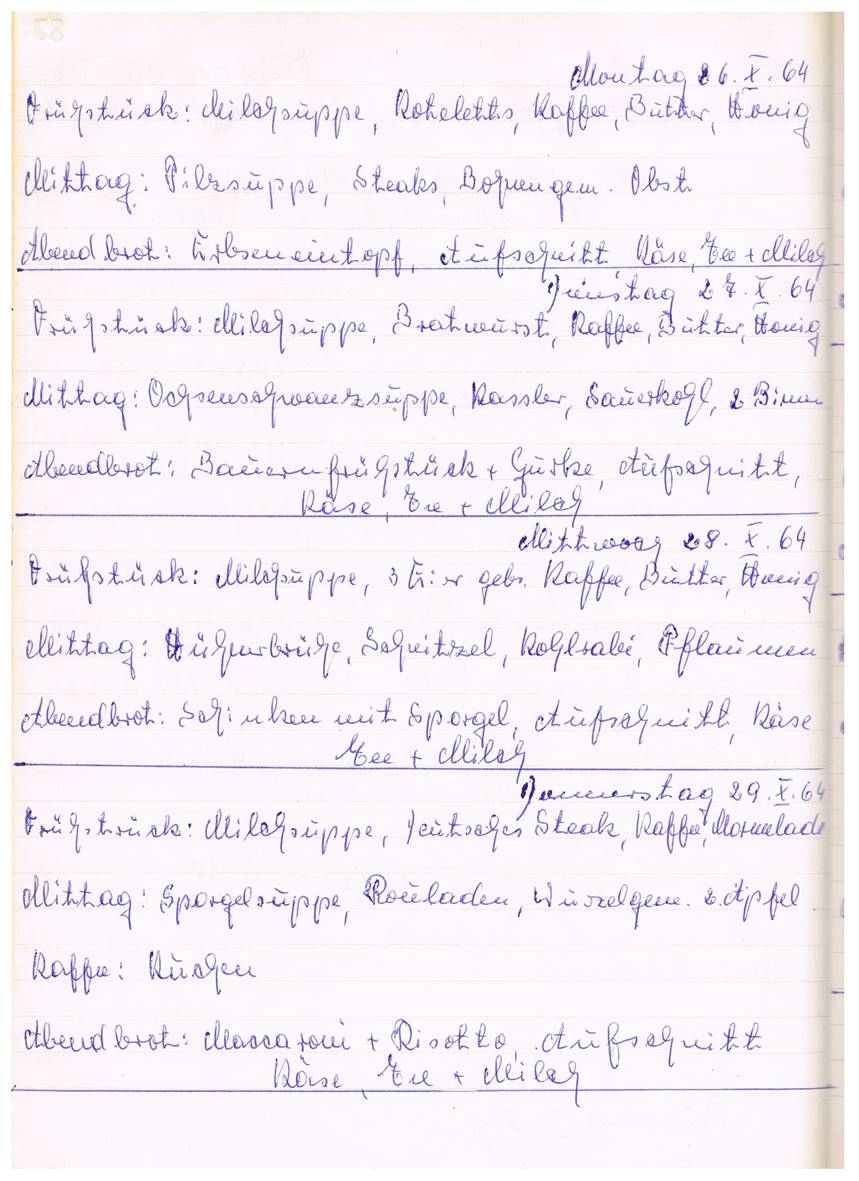 Montag 26. X. 64
Frühstück: Milchsuppe, Koteletts, Kaffee, Butter, Honig
Mittag: Pilzsuppe, Steaks, Bohnengem. Obst
Abendbrot: Erbseneintopf, Aufschnitt Käse, Tee + Milch
Dienstag 27. X. 64
Frühstück: Milchsuppe, Bratwurst, Kaffee, Butter, Honig
Mittag: Ochsenschwanzsuppe, Kassler, Sauerkohl, 2 Birnen
Abendbrot: Bauernfrühstück + Gurke, Aufschnitt,
Käse, Tee + Milch
Mittwoch 28. X. 64
Frühstück: Milchsuppe, 3 Eier gebr. Kaffee, Butter, Honig
Mittag: Hühnerbrühe, Schnitzel, Kohlrabi, Pflaumen
Abendbrot: Schinken mit Spargel, Aufschnitt, Käse
Tee + Milch
Donnerstag 29. X. 64
Frühstück: Milchsuppe, deutsches Steak, Kaffee, Marmelade
Mittag: Spargelsuppe, Rouladen, Wurzelgem. 2 Äpfel
Kaffee: Kuchen
Abendbrot: Maccaroni + Risotto, Aufschnitt
Käse, Tee + Milch